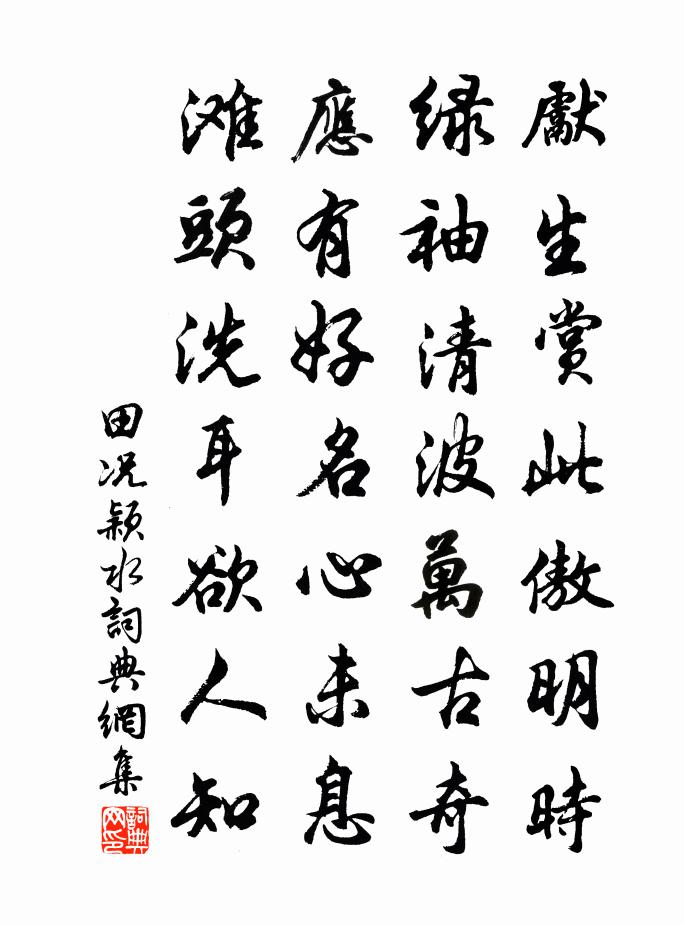 獻生賞此傲明時
緑袖清波萬古奇
應有好名心未息
滩頭洗耳欲人知
田况穎水詞典網集
詞典网印